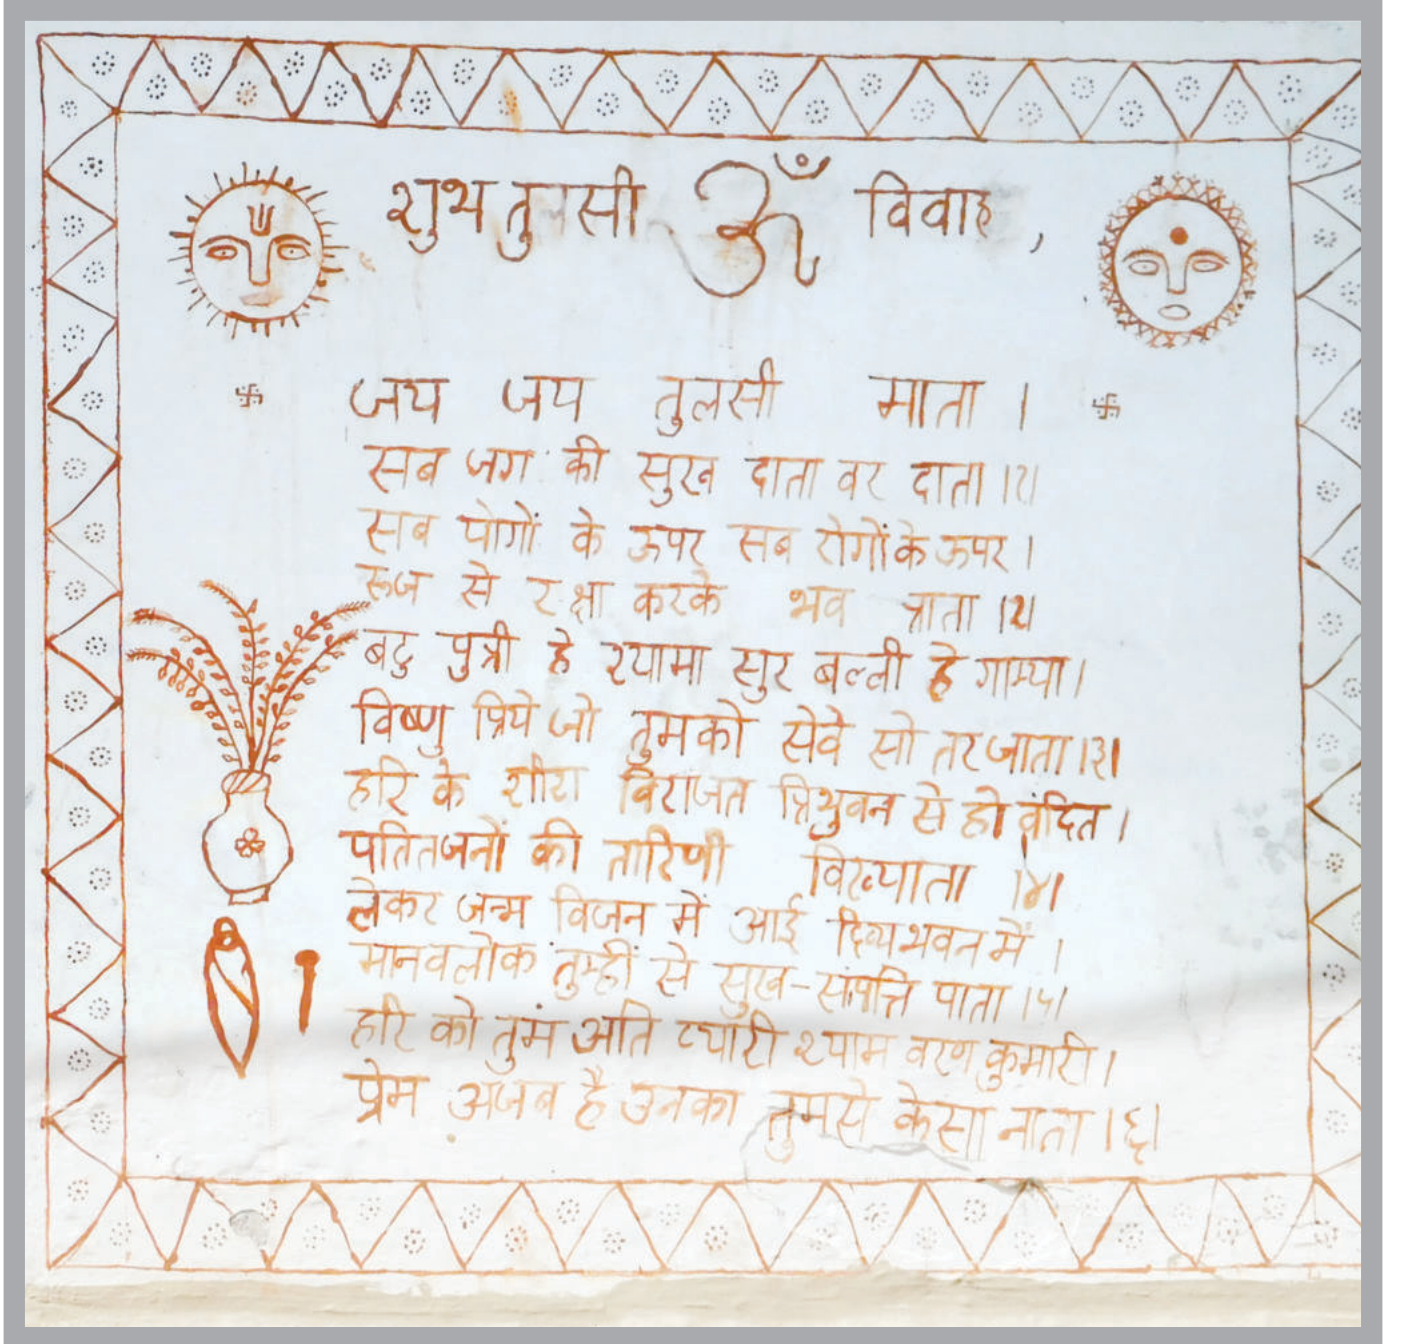 शुभ तुलसी ॐ विवाह,
जय जय तुलसी माता ।
सब जग की सुख दाता वर दाता ।१।
सब योगों के ऊपर सब रोगों के ऊपर ।
रूज से रक्षा करके भव त्राता ।२।
बटु पुत्री हे श्यामा सुर बल्ली हे गाम्या ।
विष्णु प्रिये जो तुमको सेवे सो तर जाता ।३।
हरि के शीश विराजत त्रिभुवन से हो वंदित ।
पतितजनों की तारिणी विख्याता ।४।
लेकर जन्म विजन में आई दिव्य भवन में ।
मानवलोक तुम्हीं से सुख-संपत्ति पाता ।५।
हरि को तुम अति प्यारी श्याम वरण कुमारी ।
प्रेम अजब है उनका तुमसे केसा नाता ।६।